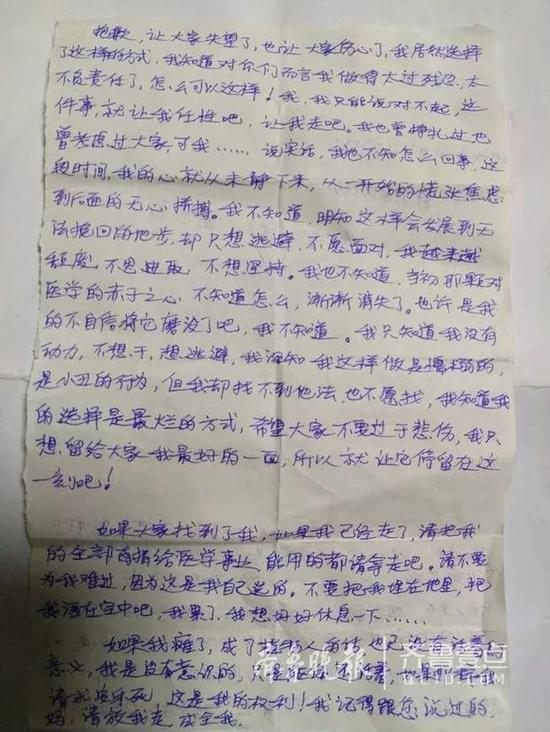 抱歉，让大家失望了，也让大家伤心了，我居然选择
了这样的方式，我知道对你们而言我做得太过残忍，太
不负责任了，怎么可以这样！我，我只能说对不起，这
件事，就让我任性吧，让我走吧。我也曾挣扎过也
曾考虑过大家，可我……说实话，我也不知怎么回事，这
段时间，我的心就从未静下来，从一开始的慌张焦虑
到后面的无心拼搏。我不知道，明知这样会发展到无
法挽回的地步，却只想逃避，不愿面对，我越来越
颓废，不思进取，不想坚持。我也不知道，当初那颗对
医学的赤子之心，不知道怎么，渐渐消失了。也许是我
的不自信将它磨没了吧，我不知道。我只知道我没有
动力，不想干，想逃避，我深知我这样做是懦弱的，
是小丑的行为，但我却找不到他法，也不愿找，我知道我
的选择是最烂的方式，希望大家不要过于悲伤，我只
想留给大家我最好的一面，所以就让它停留在这
一刻吧！
如果大家找到了我，如果我已经走了，请把我
的全部捐给医学事业，能用的都请拿走吧。请不要
为我难过，因为这是我自己选的。不要把我埋在地里，把
我洒在空中吧，我累了，我想好好休息一下……
如果我瘫了，成了植物人的话，也已没有活着的
意义，我是没有意识的，
请求安乐死，这是我的权利！我记得跟您说过的，
妈，请放我走，成全我。
南方晚报 齐鲁壹点